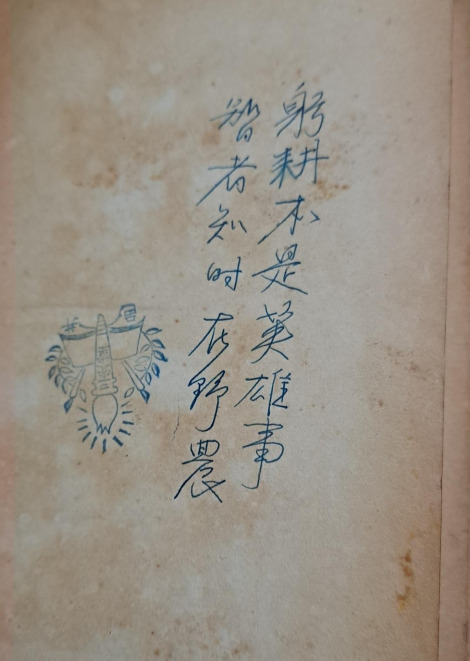 躬耕本是英雄事
智者知时在野農